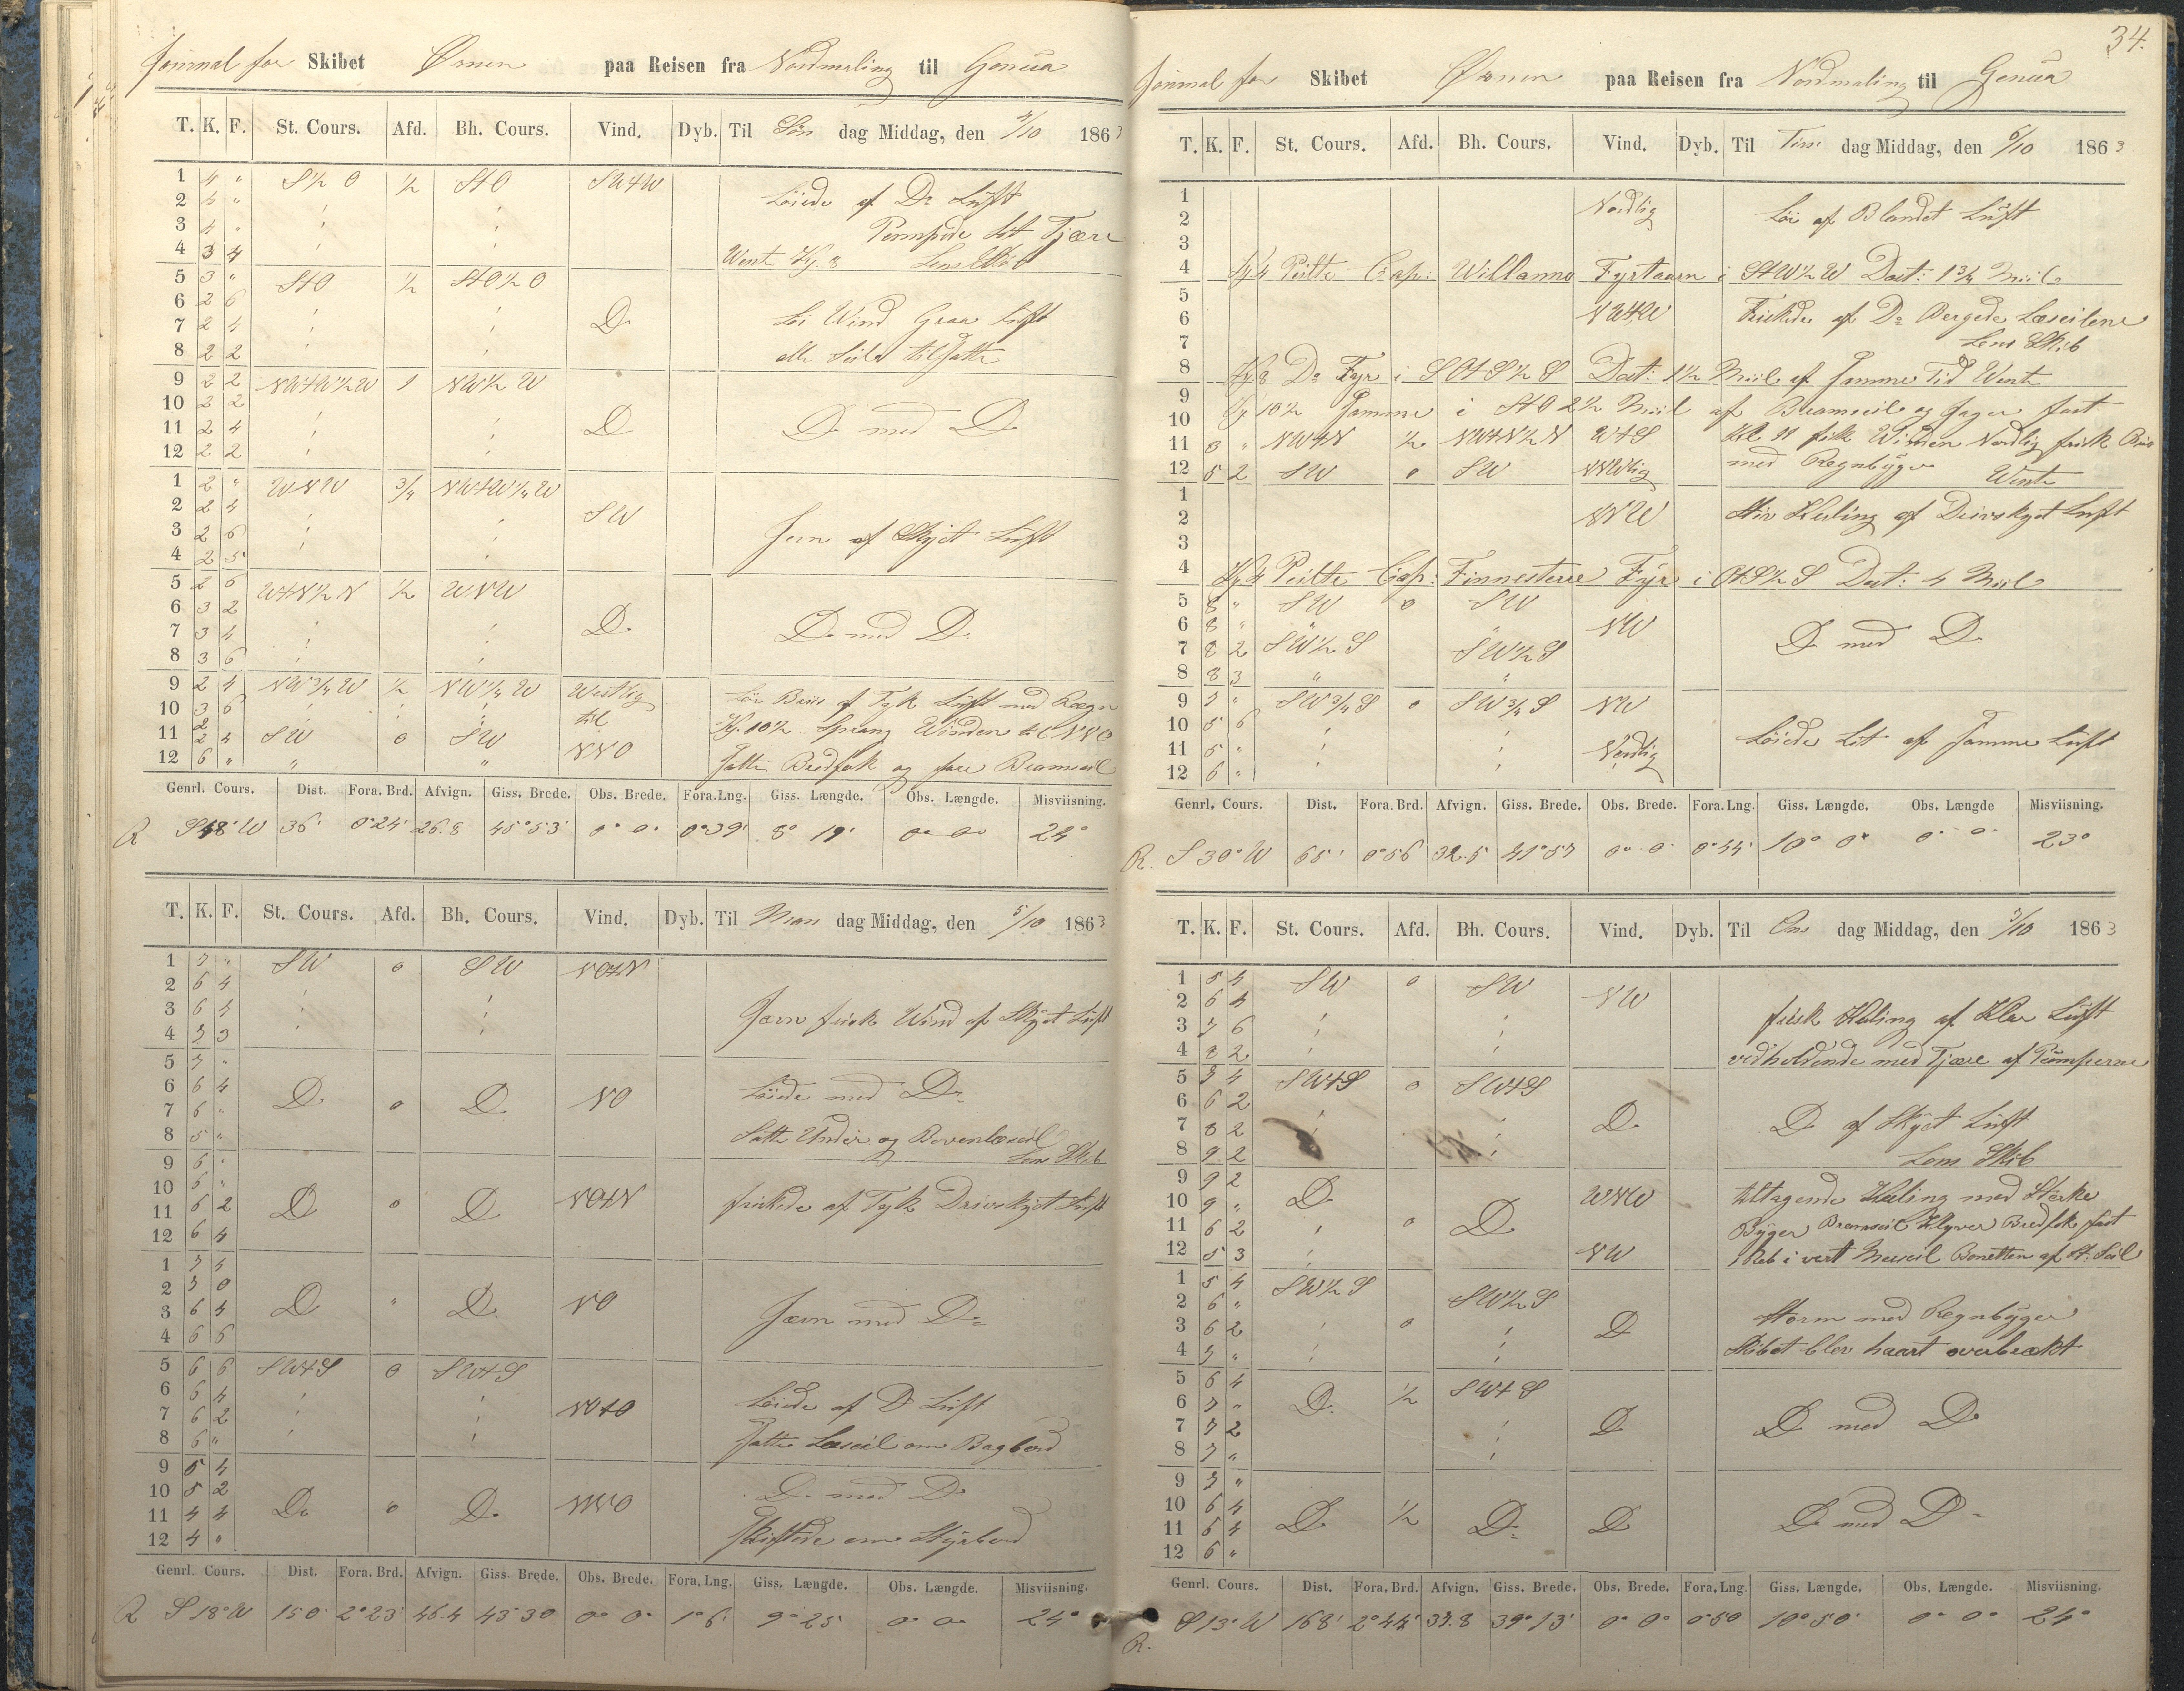 Journal for Skibet Ørnen paa Reisen fra Nordmaling til Genua
T. K. F. St. Cours. Afd. Bh. Cours. Vind. Dyb. Til Søn dag Middag, den 4/10 1863
1 4 " S½O ½ StO SWtW
2 4 " Løiede af Do Luft
3 4 " Pompede lit Tjære
4 3 4 Wente Kl. 8 Lens Skib
5 3 " StO ½ StO½O
6 2 6 Løi Wind Graa Luft
7 2 4 D.
8 2 2 alle Seile tilsatte
9 2 2 NWtW½W 1 NW½W
10 2 2
11 2 4 D D med D
12 2 2
1 2 " WNW ¾ NWtW¼W
2 2 4 SW
3 2 6 Jevn af Skyet Luft
4 2 5
5 2 6 WtN½N ½ WNW
6 3 2
7 3 4 D. D. med D.
8 3 6
9 2 4 NW¾W ½ NW¼W Westlig Løi Briis af Tyk Luft med Rægn
10 3 6 til Kl. 10½ Sprang Winden til NNO
11 2 4 SW 0 SW NNO
12 6 " " " Satte Bredfok og fore Bramseil
Genrl. Cours. Dist. Fora. Brd. Afvign. Giss. Brede. Obs. Brede. Fora. Lng. Giss. Længde. Obs. Længde. Misviisning.
R S48°W 36' 0°24' 26.8 45°53' 0° 0' 0°39' 8° 19' 0° 0' 24°
T. K. F. St. Cours. Afd. Bh. Cours. Vind. Dyb. Til Man dag Middag, den 5/10 1863
1 7 " SW 0 SW NOtN
2 6 4
3 6 4 Jævn frisk Wind af Skyet Luft
4 7 3
5 7 "
6 6 4 D. 0 D. NO Løiede med D.
7 6 "
8 5 " Satte Under og Bovenlæseil
9 6 " Lens Skib
10 6 "
11 6 2 D 0 D NOtN friskede af Tyk Drivskyet Luft
12 6 4
1 7 4
2 7 0
3 6 4 D " D. NO Jævn med D.
4 6 6
5 6 6 SWtS 0 SWtS
6 6 4 Løiede af D Luft
7 6 2 NOtO
8 6 " Satte Læseil om Bagbord
9 5 4
10 5 2 D. med D
11 4 4 D. 0 D. NNO
12 4 " Skiftede om Styrbord
Genrl. Cours. Dist. Fora. Brd. Afvign. Giss. Brede. Obs. Brede. Fora. Lng. Giss. Længde. Obs. Længde. Misviisning.
R S18°W 150' 2°23' 46.4 43°30 0° 0' 1°6' 9°25' 0° 0' 24°
34.
Journal for Skibet Ørnen paa Reisen fra Nordmaling til Genua
T. K. F. St. Cours. Afd. Bh. Cours. Vind. Dyb. Til Tirs dag Middag, den 6/10 1863
1 Nordlig Løi af Blandet Luft
2
3
4 Kl 4 Peilte Cap: Willanno Fyrtaarn i StW½W Dist: 1¾ Miil
5
6 NWtW Friskede af Do Bergede Læseilene
7 Lens Skib
8 Kl 8 Do Fyr i SOtS½S Dist: 1½ Miil af Samme Tid Wente
9 Kl 10½ Samme i StO 2½ Miil af Bramseile og Jager fast
10
11 3 " NWtN ½ NWtN½N WtS Kl. 11 fik Winden Nordlig frisk Briis
12 5 2 SW 0 SW NNWlig med Regnbyger Wente
1
2 NNW Stiv Kuling af Drivskyet Luft
3
4 Kl 4 Peilte Cap: Finnesterre Fyr i OtS½S Dist: 4 Miil
5 8 " SW 0 SW
6 8 " " " NW
7 8 2 SW½S SW½S D med D
8 8 3 " "
9 7 " SW¾S 0 SW¾S NW
10 5 6
11 5 " Nordlig Løiede Lit af Samme Luft
12 6 "
Genrl. Cours. Dist. Fora. Brd. Afvign. Giss. Brede. Obs. Brede. Fora. Lng. Giss. Længde. Obs. Længde Misviisning.
R. S30°W 65' 0°56 32.5 41°57 0° 0' 0°44' 10° 0' 0° 0° 23°
T. K. F. St. Cours. Afd. Bh. Cours. Vind. Dyb. Til Ons dag Middag, den 7/10 1863
1 5 4 SW 0 SW
2 6 4 NW frisk Kuling af Klar Luft
3 7 6
4 8 2 vedholdende med Tjære af Pomperne
5 7 4 SWtS 0 SWtS
6 6 2
7 8 2 D. D af Skyet Luft
8 9 2 Lens Skib
9 9 2 D WNW tiltagende Kuling med Stærke
10 9 "
11 6 2 0 D Byger Bramseil Klyver Bredfok fast
12 5 3 NW 1 Reb i vert Merseil Bonetten af St. Seil
1 5 4 SW½S SW½S
2 6 " Storm med Regnbyger
3 6 2 0 D
4 7 " Skibet blev haart overbrækt
5 6 4 SWtS
6 7 " D. ½
7 7 2 D D med D
8 7 "
9 7 "
10 6 4
11 6 4 D ½ D. D D. med D
12 6 "
Genrl. Cours. Dist. Fora. Brd. Afvign. Giss. Brede. Obs. Brede. Fora. Lng. Giss. Længde. Obs. Længde. Misviisning.
R. S13°W 168' 2°44' 37.8 39°13' 0° 0° 0°50 10°50' 0° 0° 24°